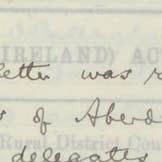 (IRELAND) AC
letter was r
s of Aberd
Rural District Cou
delegates